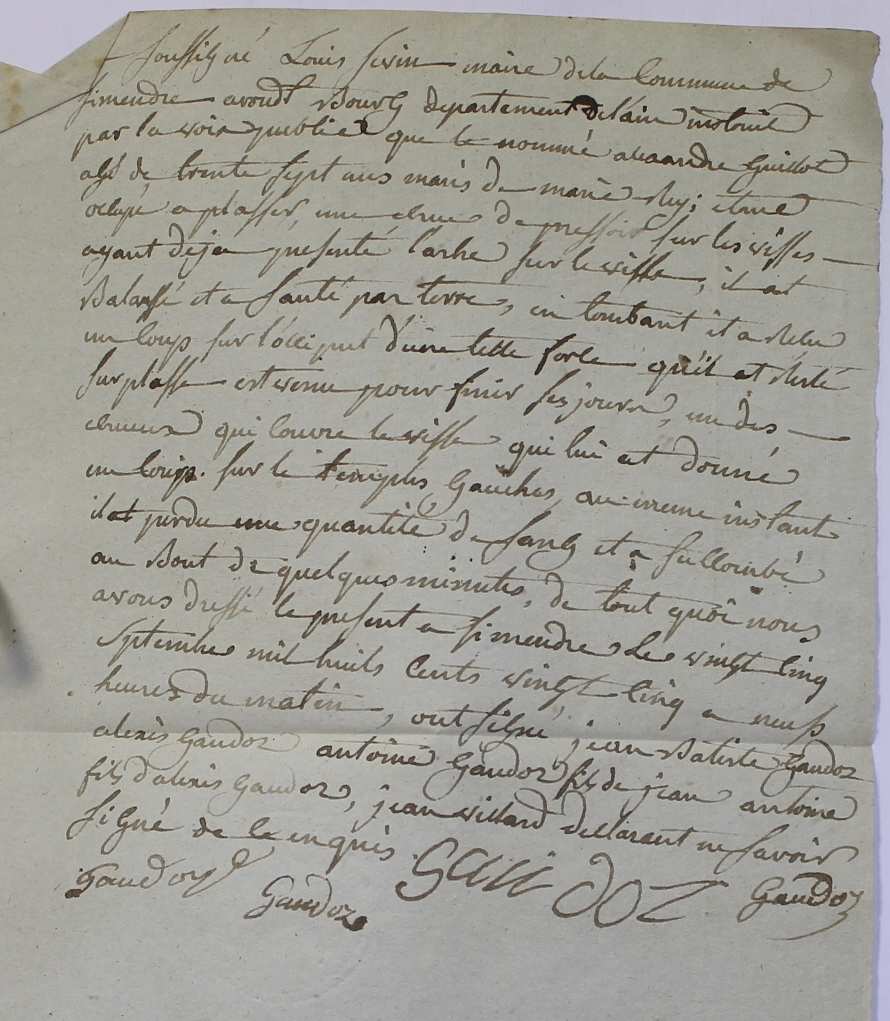 soussigné Louis maire de la Commune de
simendre arondt Bourg departement de l'ain instruit
par la voix publice que le nommé alexandre Guillot
agé de trente sept ans mariés de marie Rey; etant
ocupé a plasser, une de pressoir sur les visses
ayant deja presenté l'arbre sur le visse, il at
Balansé et a santé par terre, en tombant il a Resu
un coup sur l'occiput d'une telle force qu'il at Resté
sur plasse est venu pour finir ses jours, un des
qui couvre le visse qui lui at donné
un coup. sur le temples Gauches, au meme instant
il at perdu une quantité de sang et a sullombé
au Bout de quelques minutes, de tout quoi nous
avons dressé le present a simendre Le vingt cinq
septembre mil huits cents vingt cinq a neufs
heures du matin, ont signé, jean Batiste Gandoz
alexis Gandoz antoine Gandoz fils de jean antoine
fils d'alexis Gandoz, jean villard declarant ne savoir
signé de ce enquis
Gandoz Gandoz Gandoz Gandoz